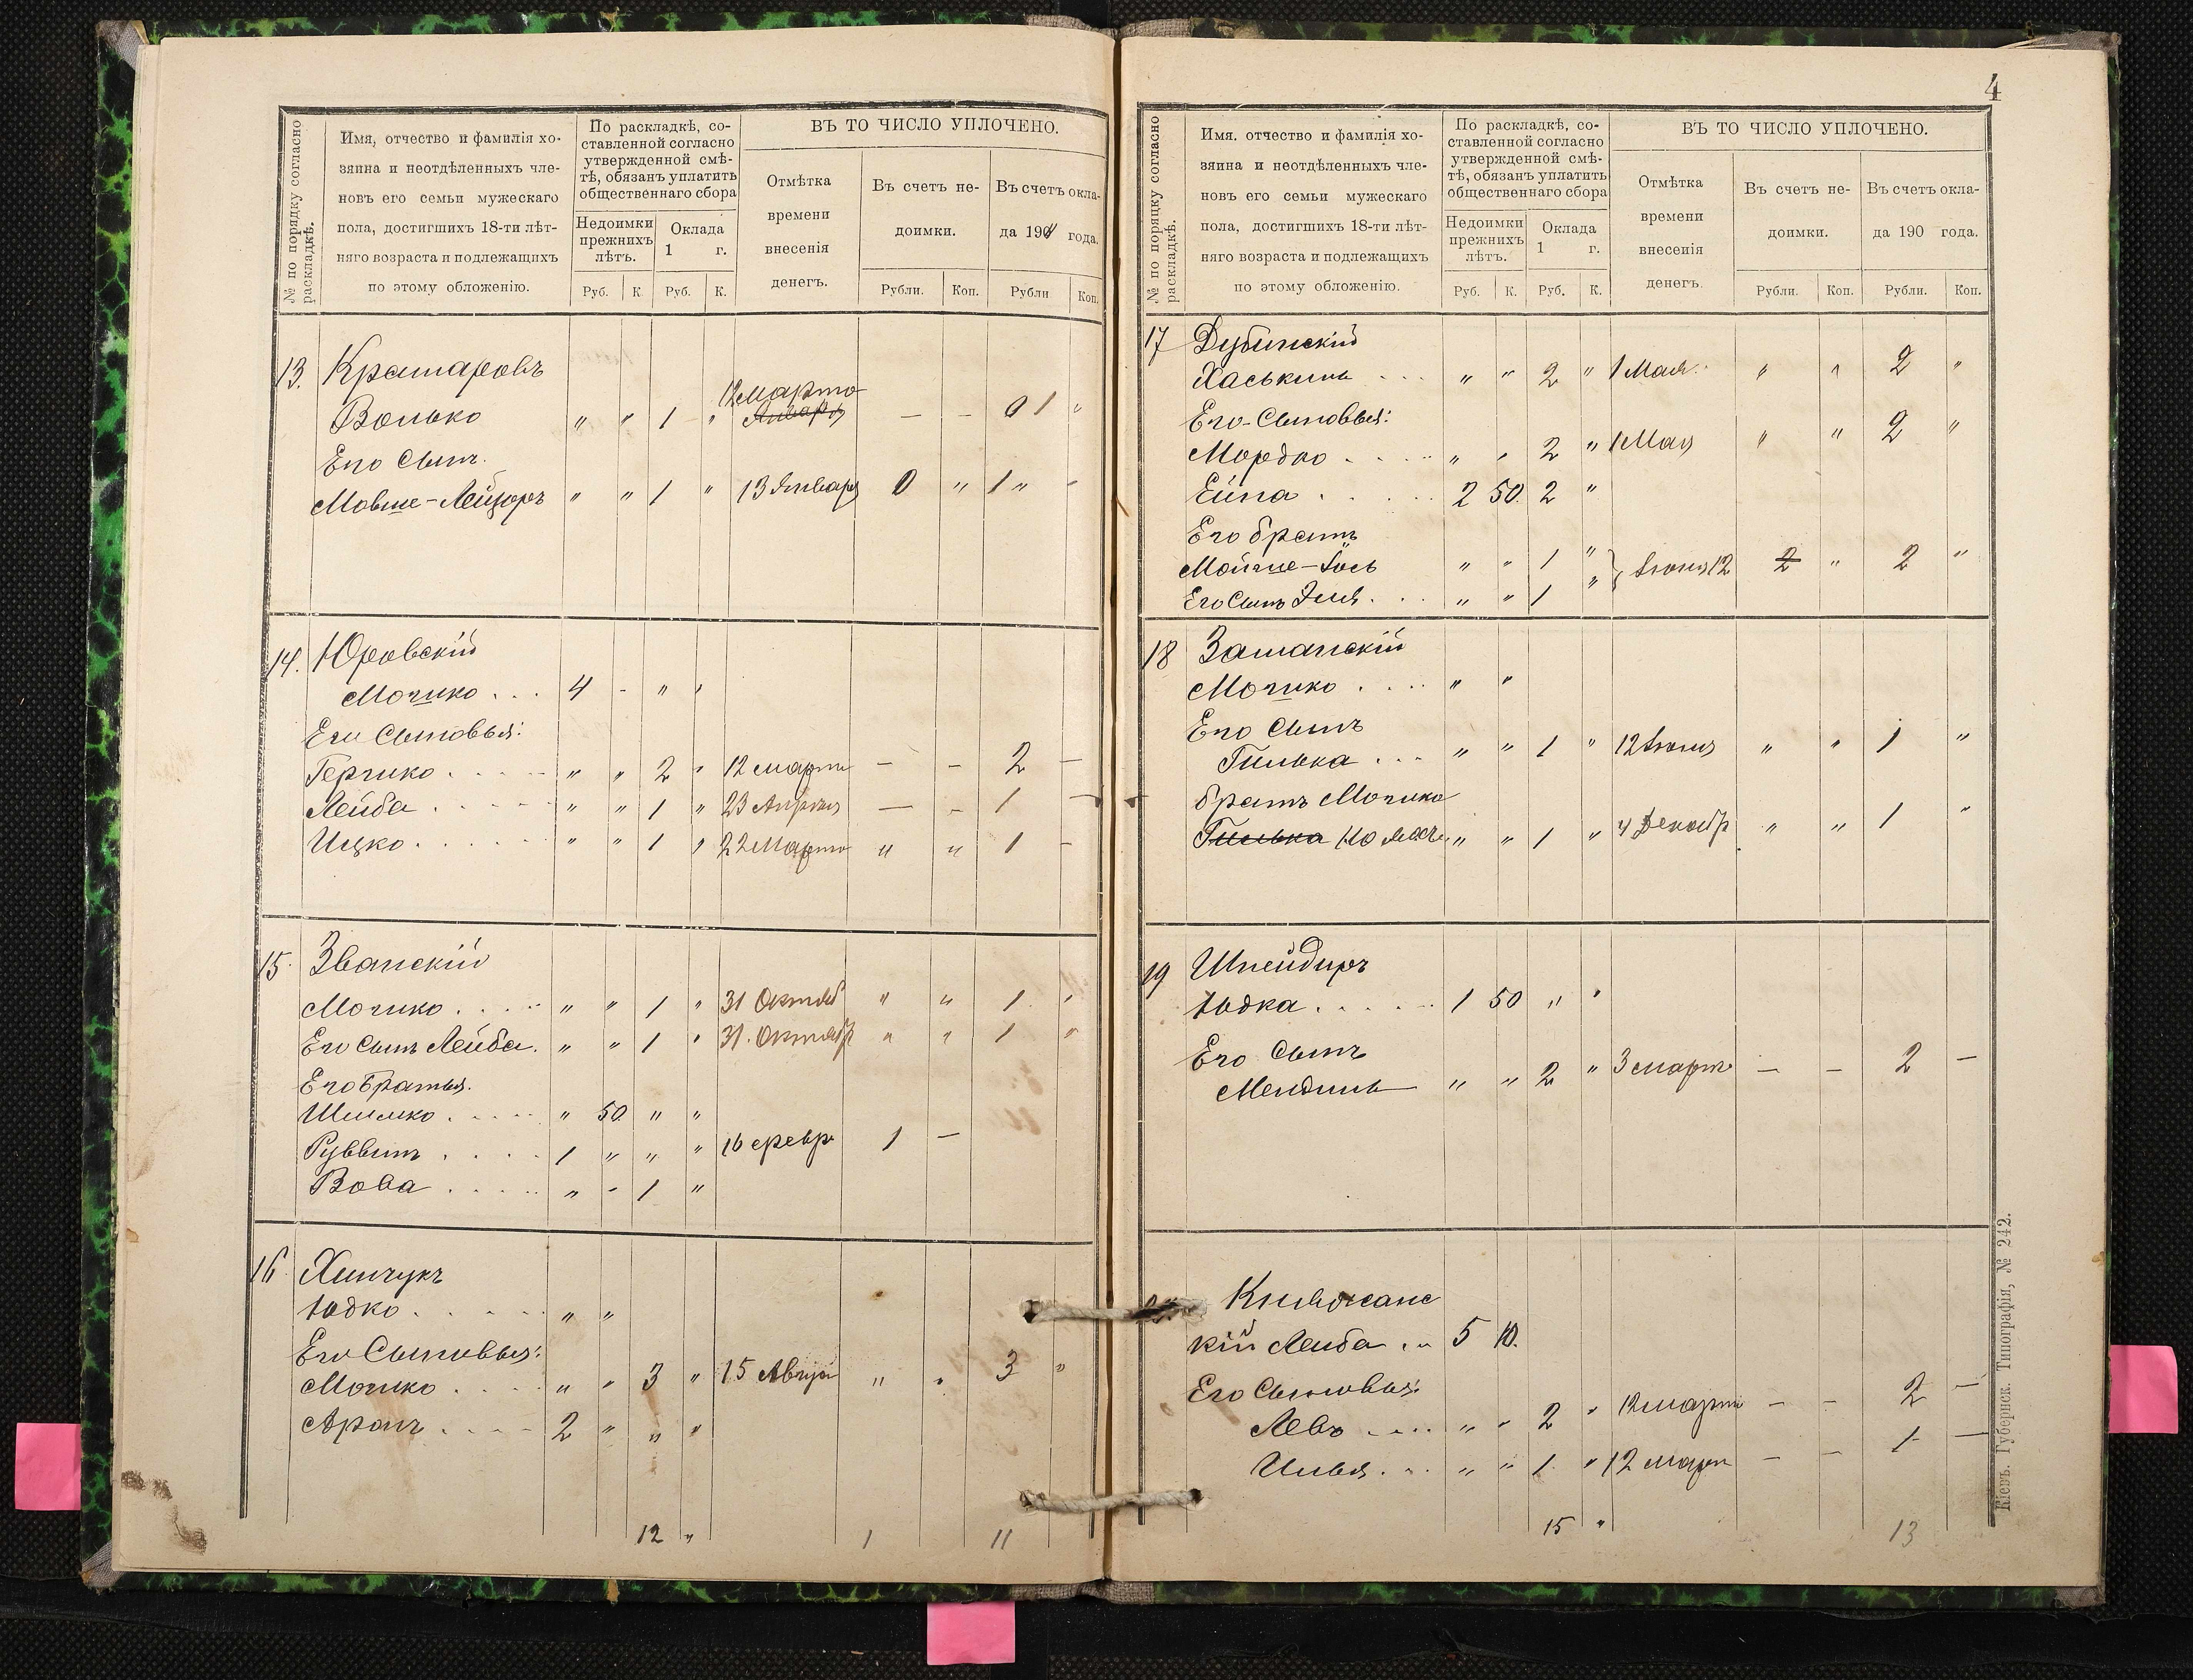 № по порядку согласно раскладкѣ.
Имя, отчество и фамилія хо-
зяина и неотдѣленныхъ чле-
новъ его семьи мужескаго
пола, достигшихъ 18-ти лѣт-
няго возраста и подлежащихъ
по этому обложенію.
По раскладкѣ, со-
ставленной согласно
утвержденной смѣ-
тѣ, обязанъ уплатить
общественнаго сбора
Недоимки прежнихъ лѣтъ.
Оклада 1 г.
Руб. К. Руб. К.
ВЪ ТО ЧИСЛО УПЛОЧЕНО.
Отмѣтка
времени
внесенія
денегъ.
Въ счетъ не-
доимки.
Въ счетъ окла-
да 190 года.
Рубли. Коп. Рубли Коп.
13. Крамаровъ
Волько " " 1 " 12 марта Января — — 1 "
Его Сынъ.
Мовше-Лейзоръ " " 1 " 13 Января 0 " 1 " -
14. Юровскій
Мошко . . . 4 - " "
Его Сыновья:
Гершко . . . . " " 2 " 12 марта — — 2 —
Лейба . . . . " " 1 " 23 Апрѣля — — 1 —
Ицко . . . . . " " 1 " 22 Марта " " 1 -
15. Званскій
Мошко . . . . " " 1 " 31 Октяб " " 1 "
Его Сынъ Лейба. " " 1 " 31. Октябр " " 1 "
Его братья.
Шлемко . . . . " 50. " "
Руввинъ . . . . 1 " " " 16 февр 1 —
Вова . . . . . " - 1 "
16. Хинчукъ
Юдко . . . . . " "
Его Сыновья:
Мошко . . . . " " 3 " 15 Авгус " " 3 "
Аронъ . . . . 2 " " "
12 " 1 11
4
№ по порядку согласно раскладкѣ.
Имя. отчество и фамилія хо-
зяина и неотдѣленныхъ чле-
новъ его семьи мужескаго
пола, достигшихъ 18-ти лѣт-
няго возраста и подлежащихъ
по этому обложенію.
По раскладкѣ, со-
ставленной согласно
утвержденной смѣ-
тѣ, обязанъ уплатить
общественнаго сбора
Недоимки прежнихъ лѣтъ.
Оклада 1 г.
Руб. К. Руб. К.
ВЪ ТО ЧИСЛО УПЛОЧЕНО.
Отмѣтка
времени
внесенія
денегъ.
Въ счетъ не-
доимки.
Въ счетъ окла-
да 190 года.
Рубли. Коп. Рубли. Коп.
17 Дубинскій
Хаськиль . . . " " 2 " 1 Мая. " " 2 "
Его-Сыновья:
Мордко . . . . " " 2 " 1 Мая " " 2 "
Ейна . . . . . 2 50. 2 "
Его братъ
Мойше-Іось " " 1 "
Его Сынъ Эля . . . " " 1 " } Іюня 12 2 " 2 "
18 Зашанскій
Мошко . . . . " "
Его Сынъ
Гилька . . . " " 1 " 12 Іюня " " 1 "
братъ Мошко
Гилька " " 1 " 4 Декабр " " 1 "
19 Шнейдиръ
Юдка . . . . . 1 50 " "
Его Сынъ
Мендиль " " 2 " 3 март — — 2 —
Книжанс
кій Лейба . . 5 10.
Его Сыновья:
Левъ . . . . " " 2 " 12 марта — — 2 —
Илья . . . " " 1 " 12 марта — — 1 —
15 " 13
Кіевъ. Губернск. Типографія, № 242.